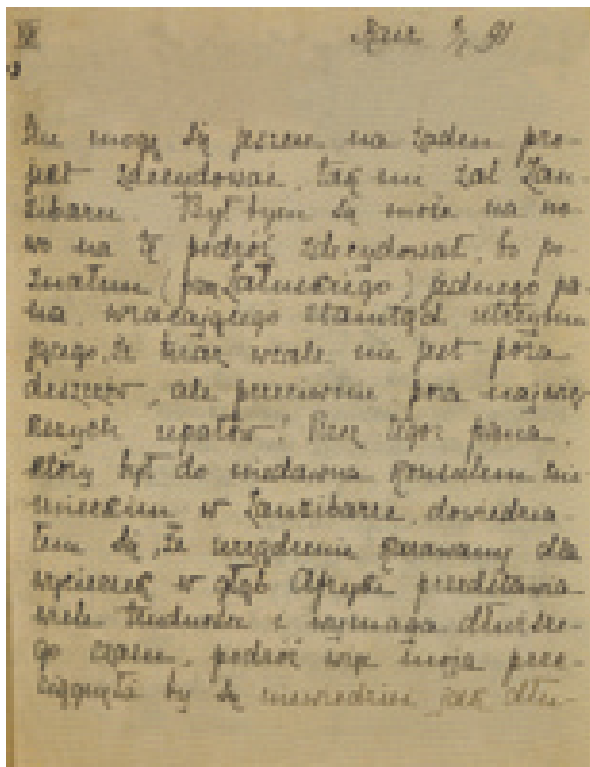 IX
Kair 91
Nie mogę się jeszcze na żaden pro-
jekt zdecydować, tak mi żal Zan-
zibaru. Był bym się może na no-
wo na tę podróż zdecydował, bo po-
znałem (pan Załuskiego) jednego pa-
na, wracającego stamtąd utrzymu-
jącego, że teraz wcale nie jest pora
deszczów, ale przeciwnie, pora najwię-
kszych upałów! Przez tegoż pana,
który był do niedawna konsulem nie-
mieckim w Zanzibarze, dowiedzia-
łem się, że urządzenie karawany dla
wycieczek w głąb Afryki przedstawia
wiele trudności i wymaga dłuższe-
go czasu, podróż więc moja prze-
ciągnęła by się niewiedzieć jak dłu-